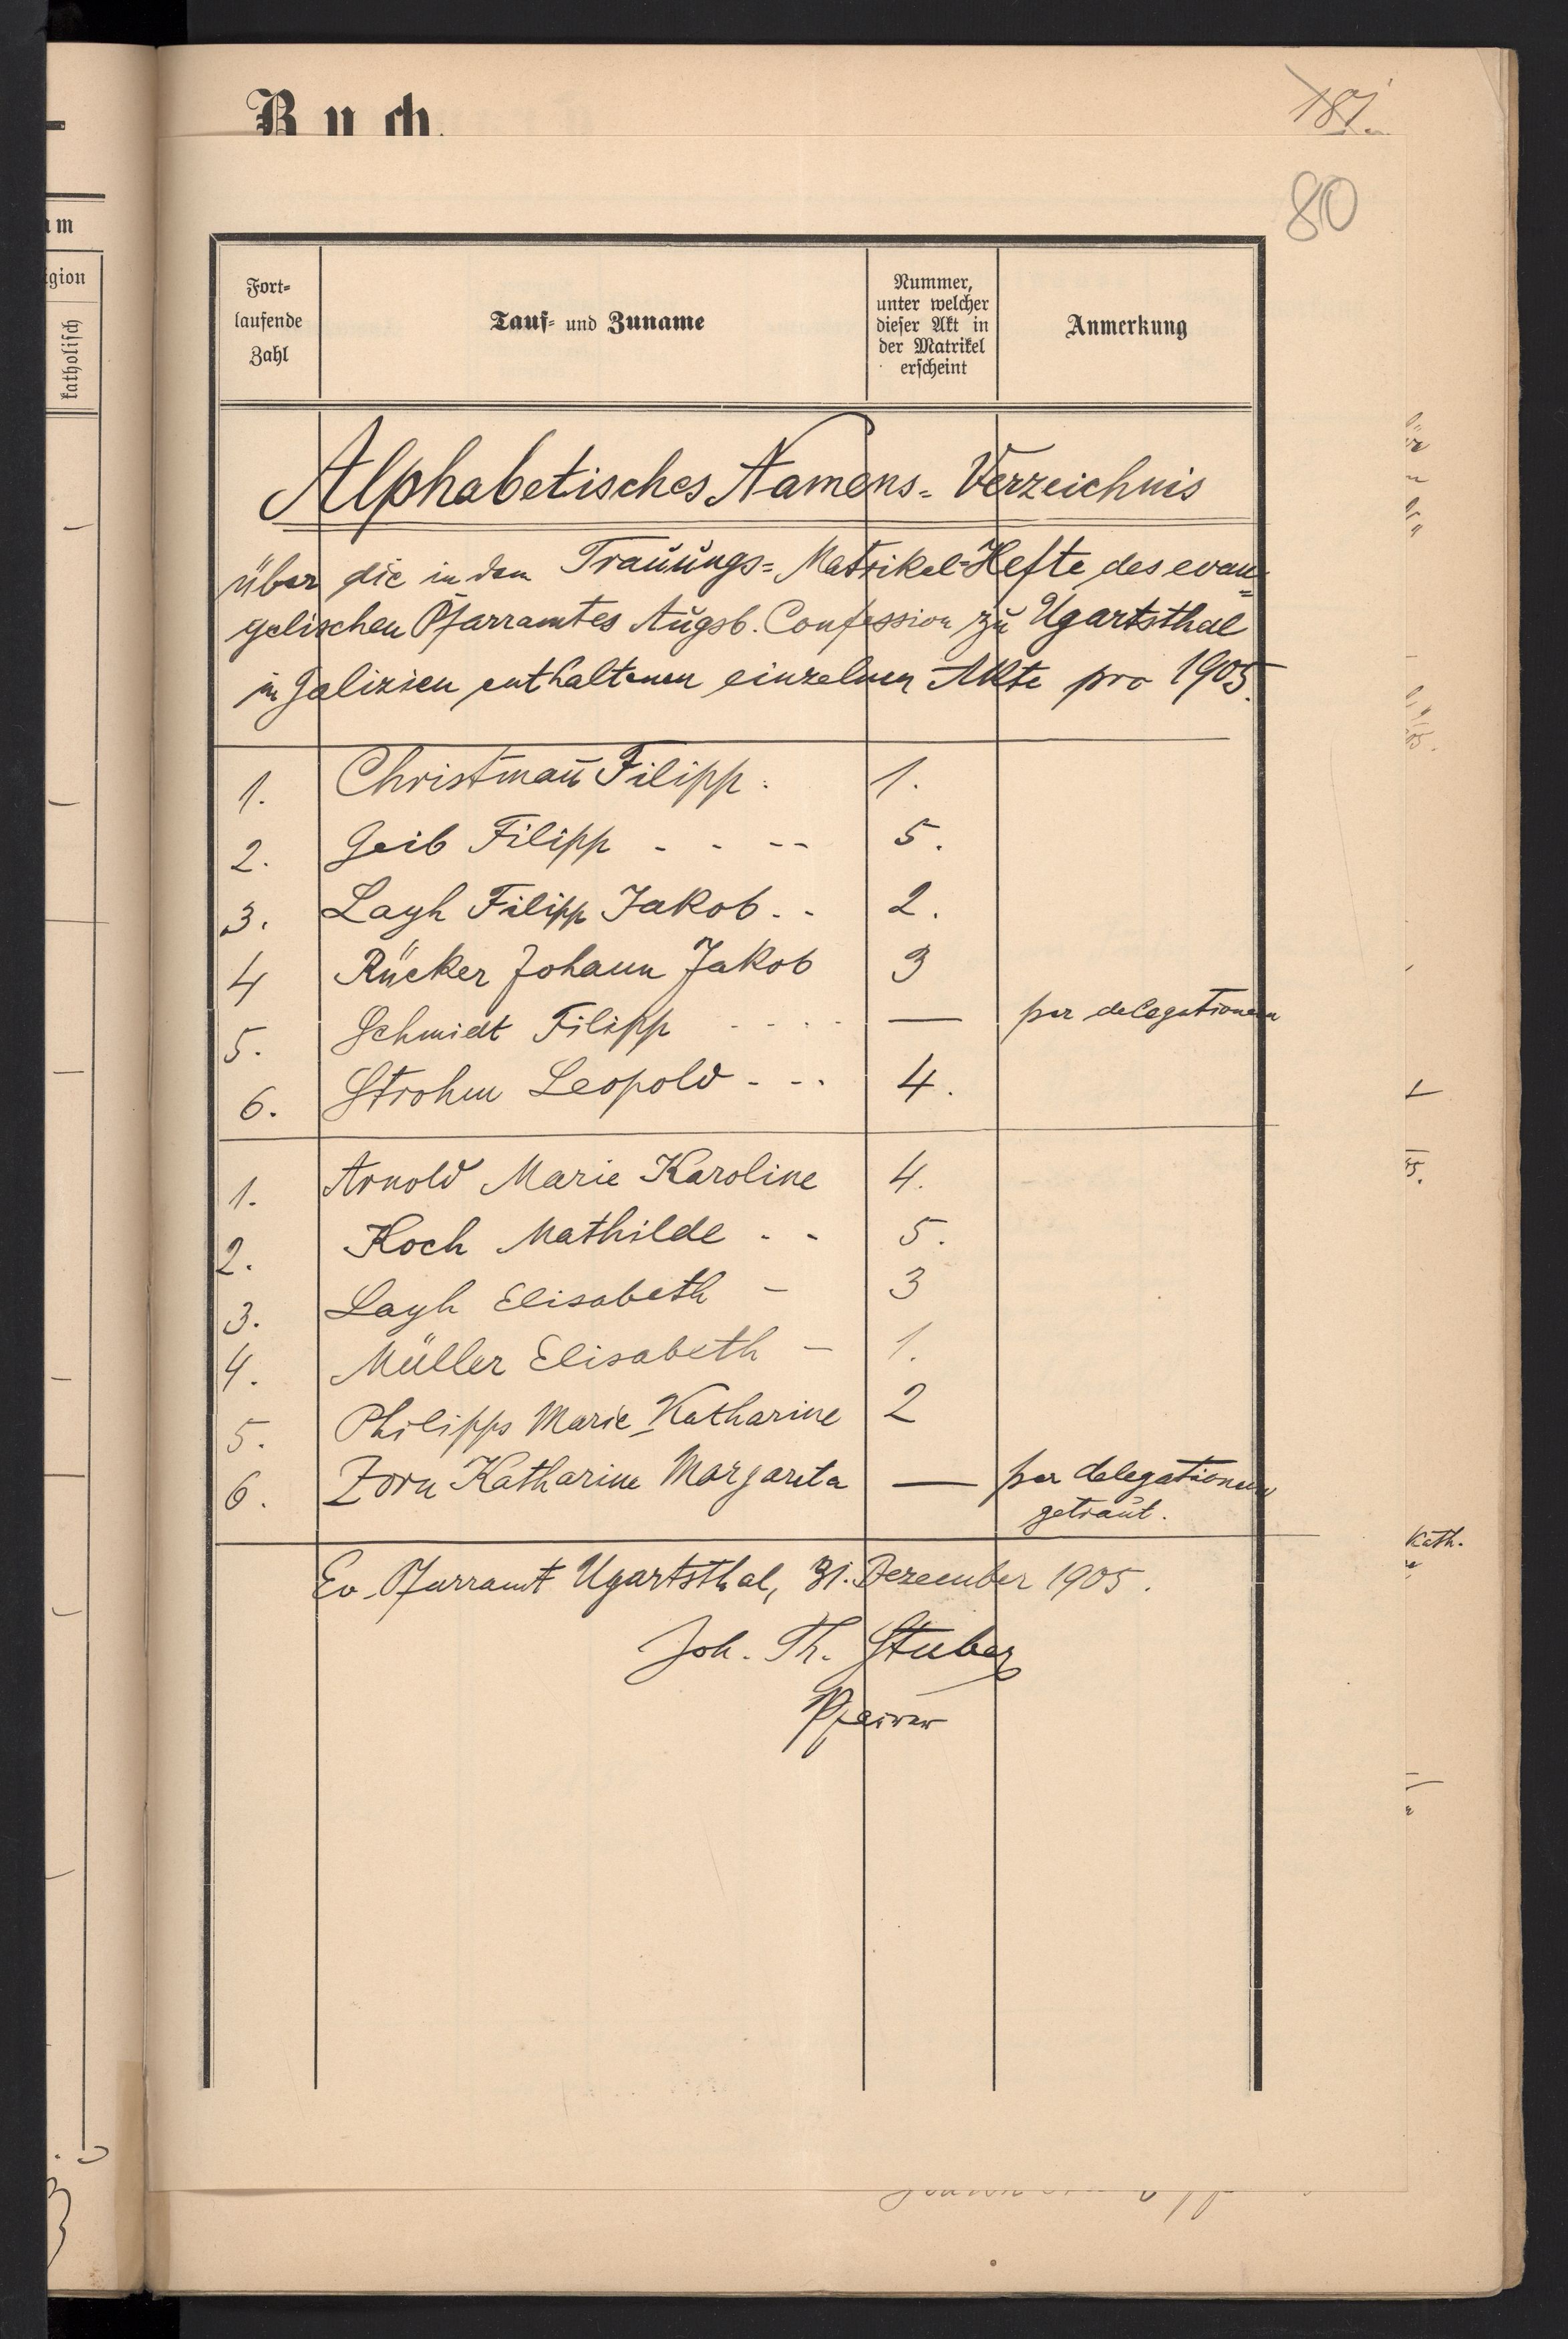 Buch.
181.
80
Fort-
laufende
Zahl
Tauf- und Zuname
Nummer,
unter welcher
dieser Akt in
der Matrikel
erscheint
Anmerkung
Alphabetisches Namens-Verzeichnis
über die in dem Trauungs-Matrikel-Hefte des evan-
gelischen Pfarramtes Augsb. Confession zu Ugartsthal
in Galizien enthaltenen einzelnen Akte pro 1905.
1. Christman̄ Filipp. 1.
2. Geib Filipp - - -- 5.
3. Layh Filipp Jakob. - 2.
4 Rücker Johann Jakob 3
5. Schmidt Filipp - - - - — per delegationem
6. Strohm Leopold - -- 4.
1. Arnold Marie Karoline 4.
2. Koch Mathilde - - 5.
3. Layh Elisabeth - 3
4. Müller Elisabeth - 1.
5. Philipps Marie Katharine 2
6. Zorn Katharine Margareta — per delegationem
getraut.
Ev. Pfarramt Ugartsthal, 31. Dezember 1905.
Joh. Th. Stuber
Pfarrer
am
igion
katholisch
Kath.